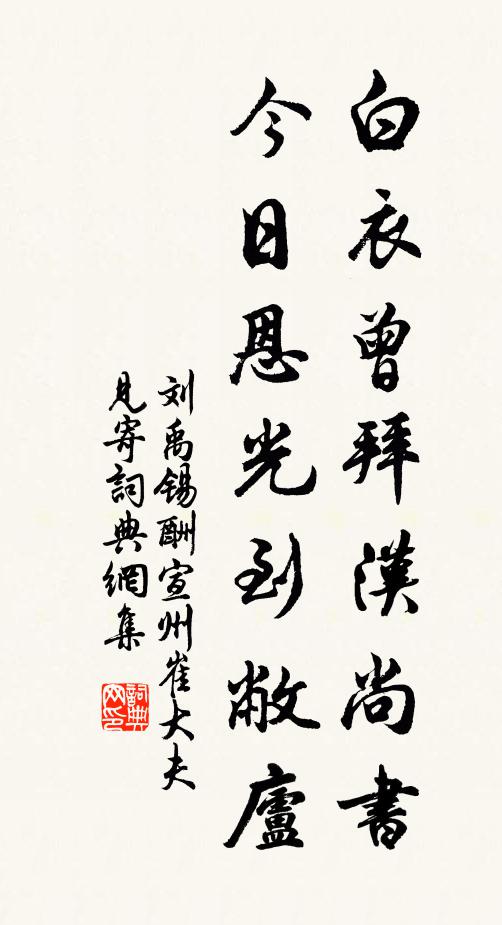 白衣曾拜漢尚書
今日恩光到敝廬
刘禹锡酬宣州崔大夫
見寄詞典網集
詞典
网印